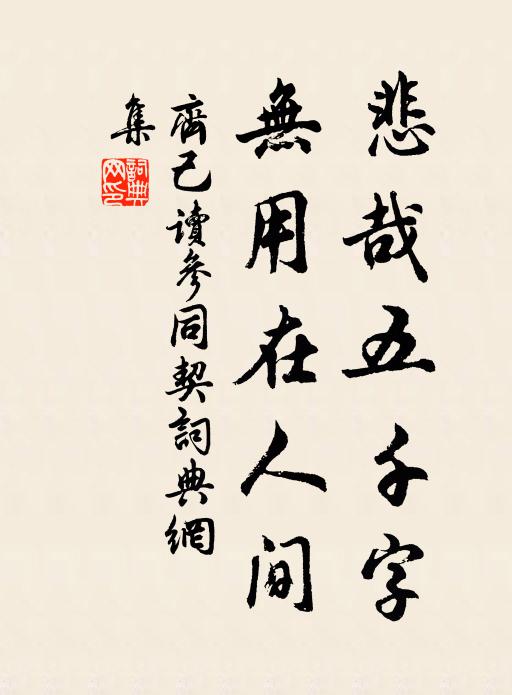 悲哉五千字
無用在人间
齊己讀參同契詞典網
集
詞典網印